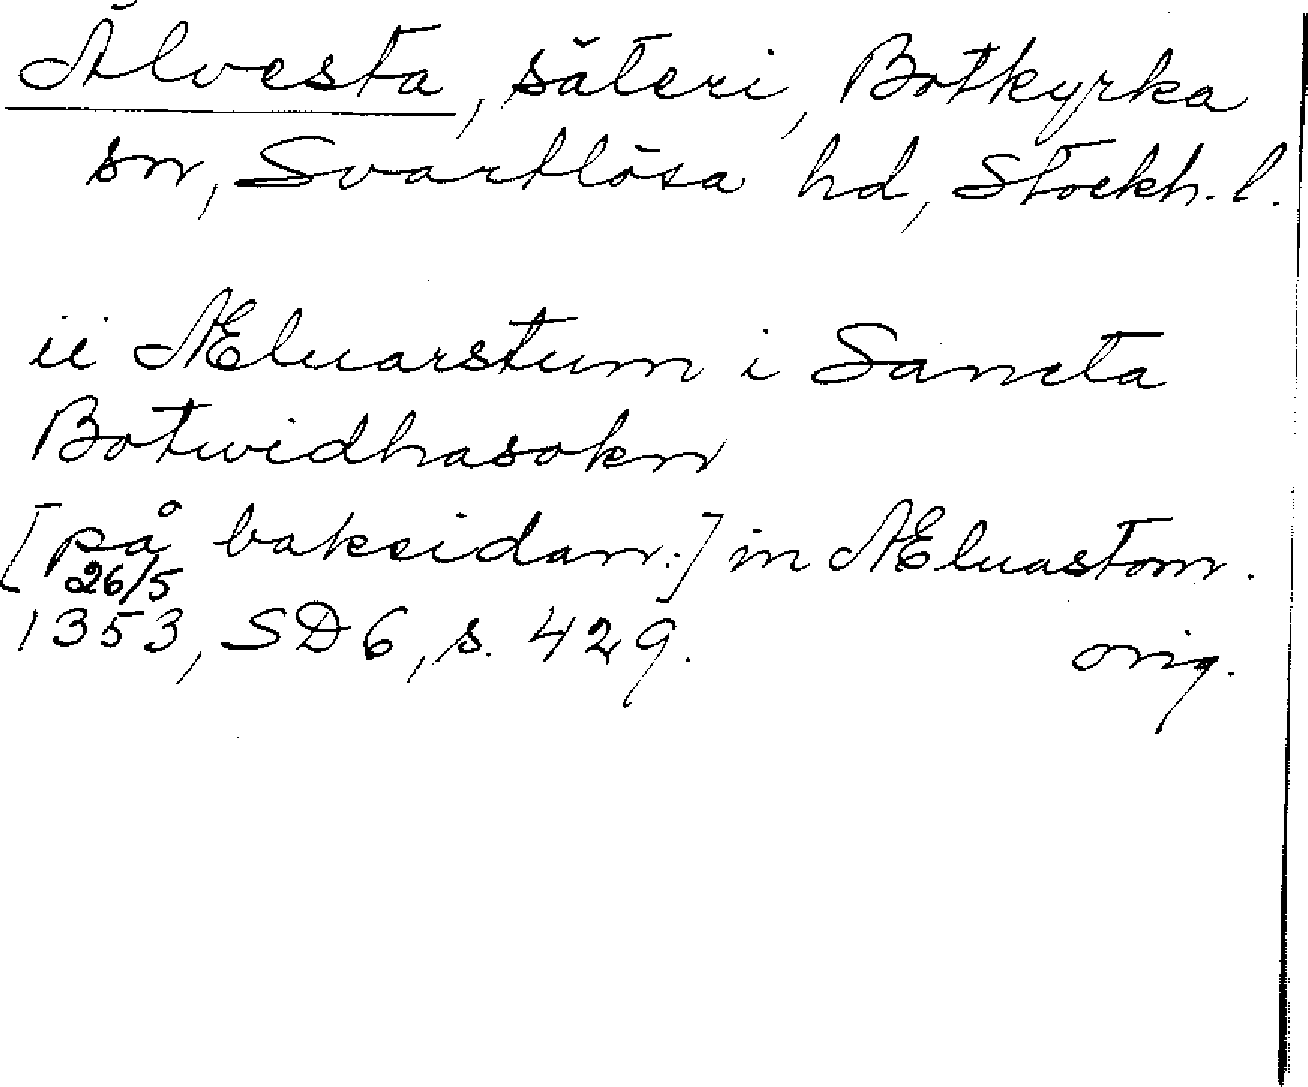 Älvesta, säteri, Botkyrka
sn, Svartlösa hd, Stockh. l.
ii Æluarstum i Sancta
Botwidhasokn
[på baksidan:] in Æluastom.
26/5
1353, SD 6, s. 429. orig.